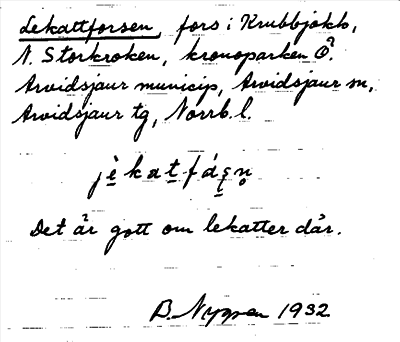 Lekattforsen, fors i Krubbjokk,
N. Storkroken, kronoparken Ö.
Arvidsjaur municip, Arvidsjaur sn,
Arvidsjaur tg, Norrb. l.
Det är gott om lekatter där.
B. Nyman 1932